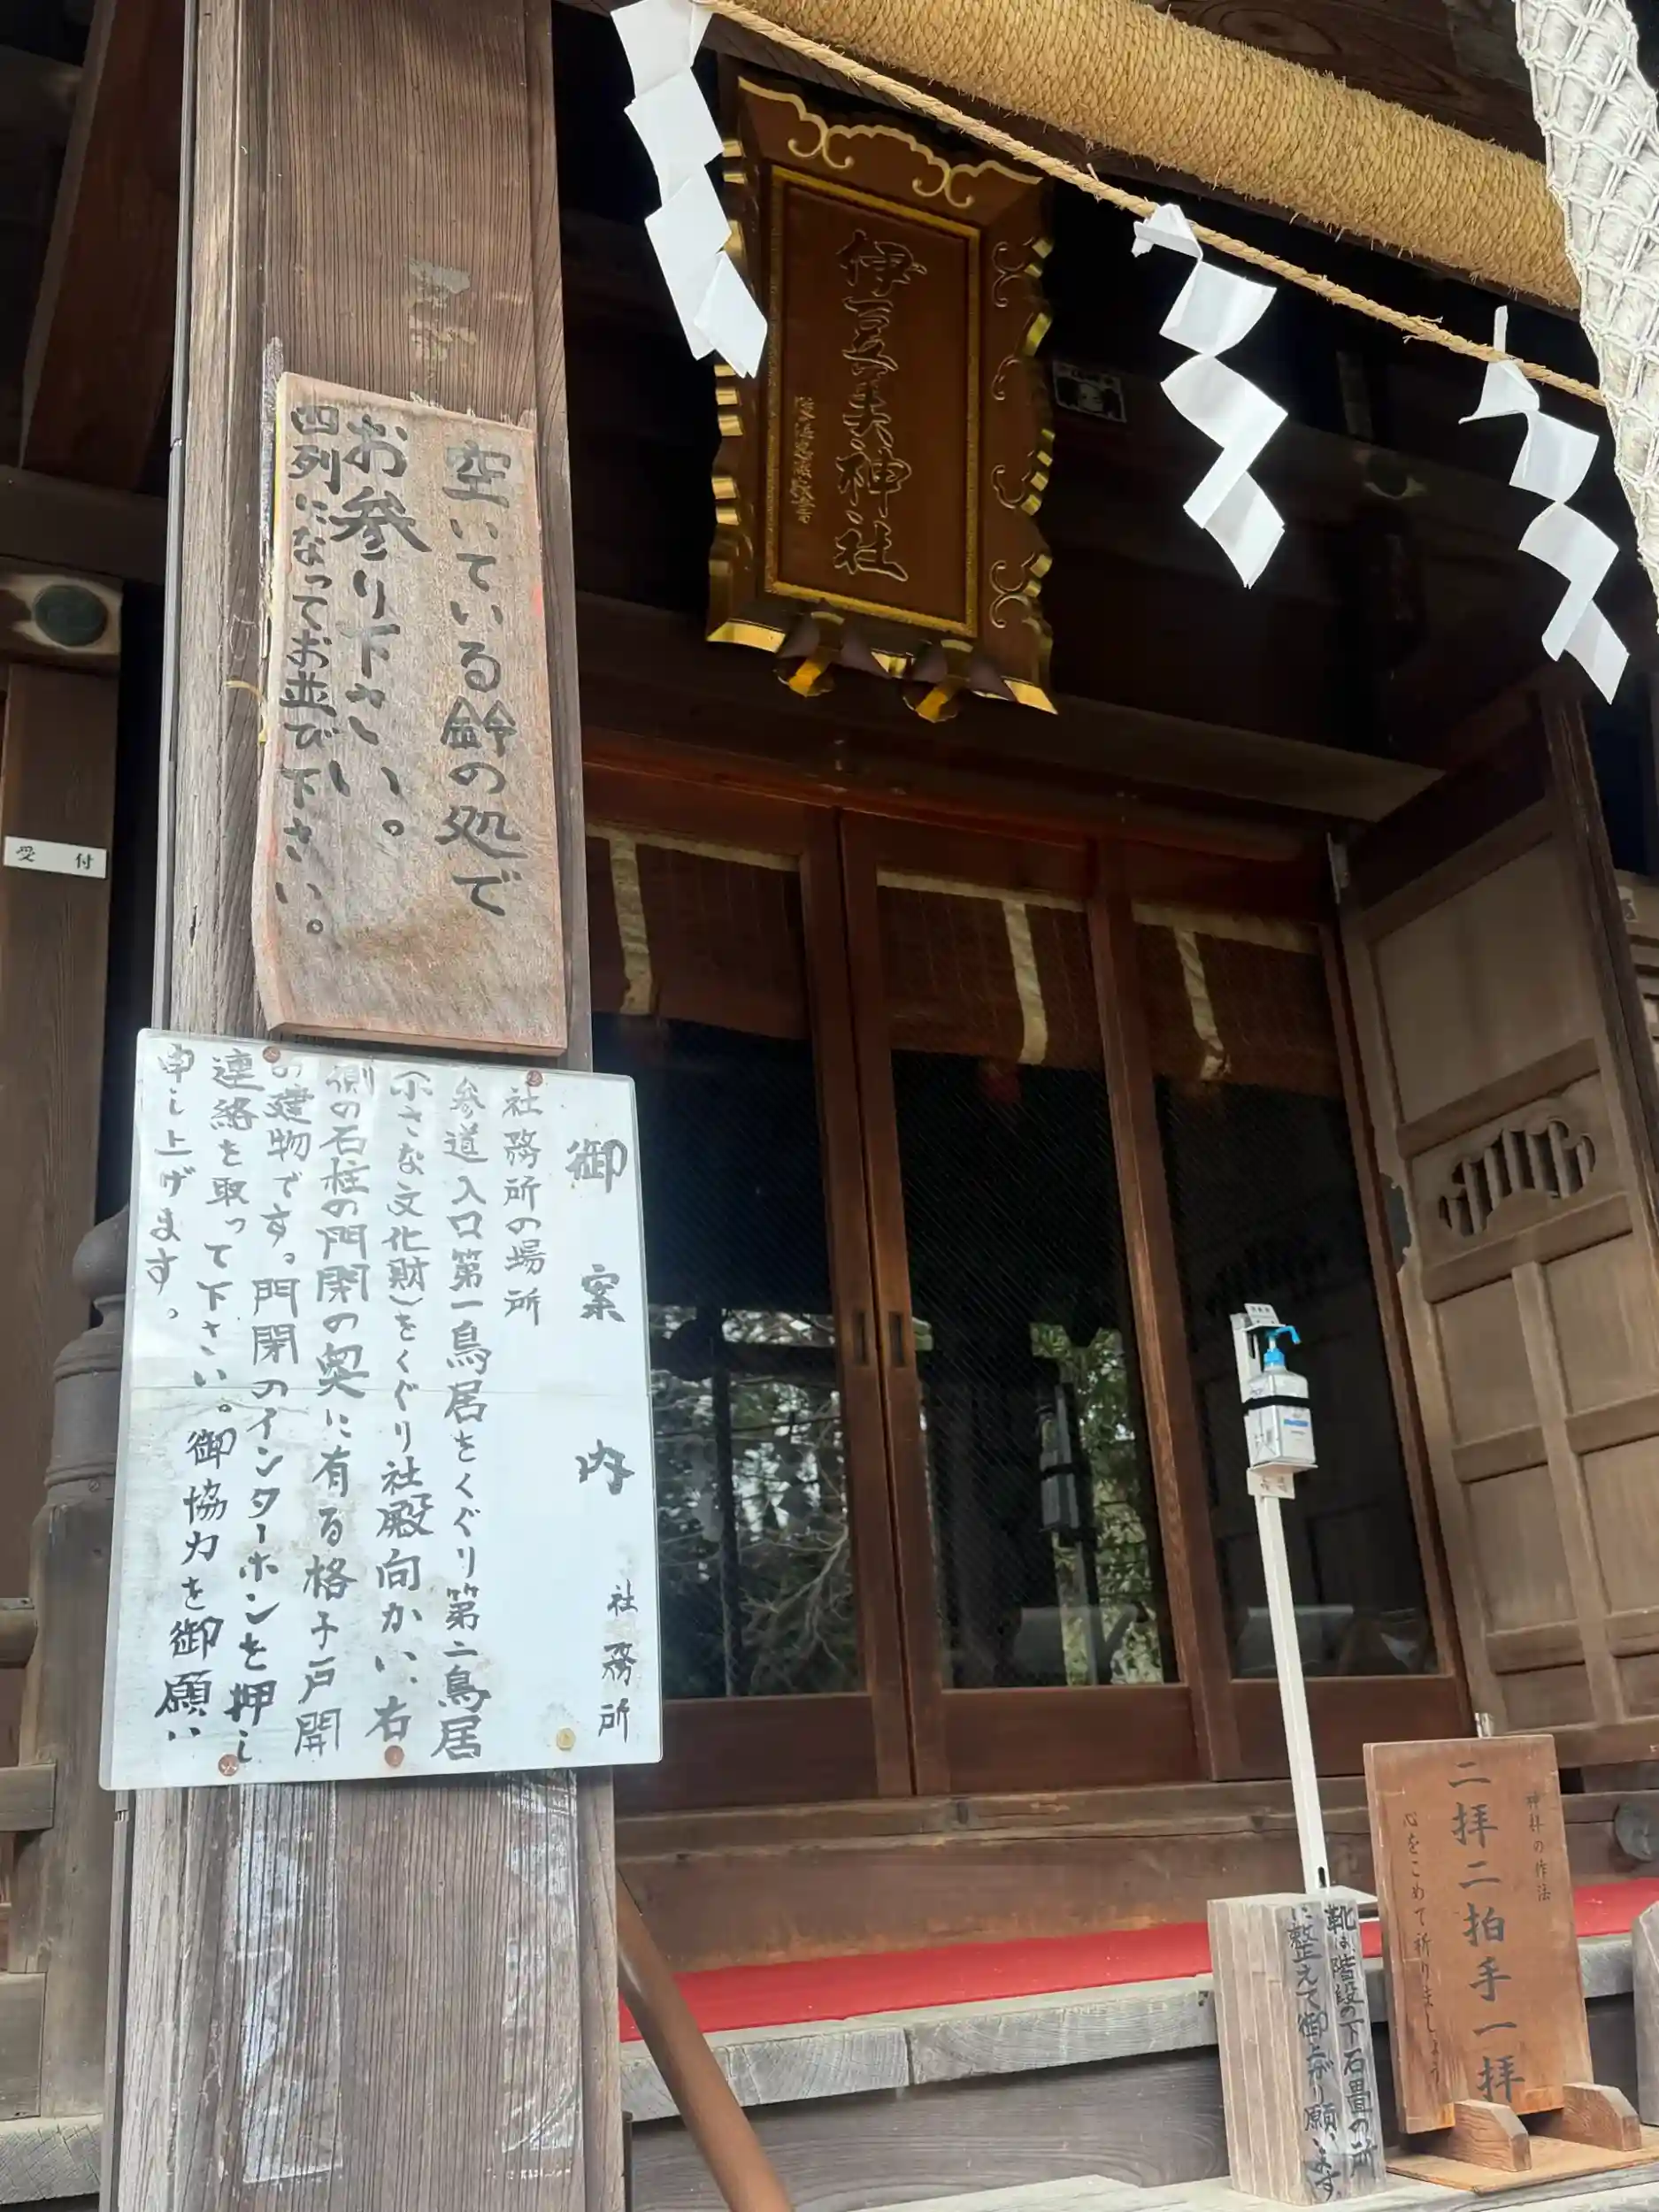 伊豆美神社
空いている鈴の処で
お参り下さい。
四列になってお並び下さい。
御案内
社務所
社務所の場所
参道入口第一鳥居をくぐり第二鳥居
(小さな文化財)をくぐり社殿向かい、右
側の石柱の門開の奥に有る格子戸開
の建物です。門開のインターホンを押し
連絡を取って下さい。御協力を御願い
申し上げます。
受付
神拝の作法
二拝二拍手一拝
心をこめて祈りましょう
靴は階段の下石畳の所
に整えて御上がり願います